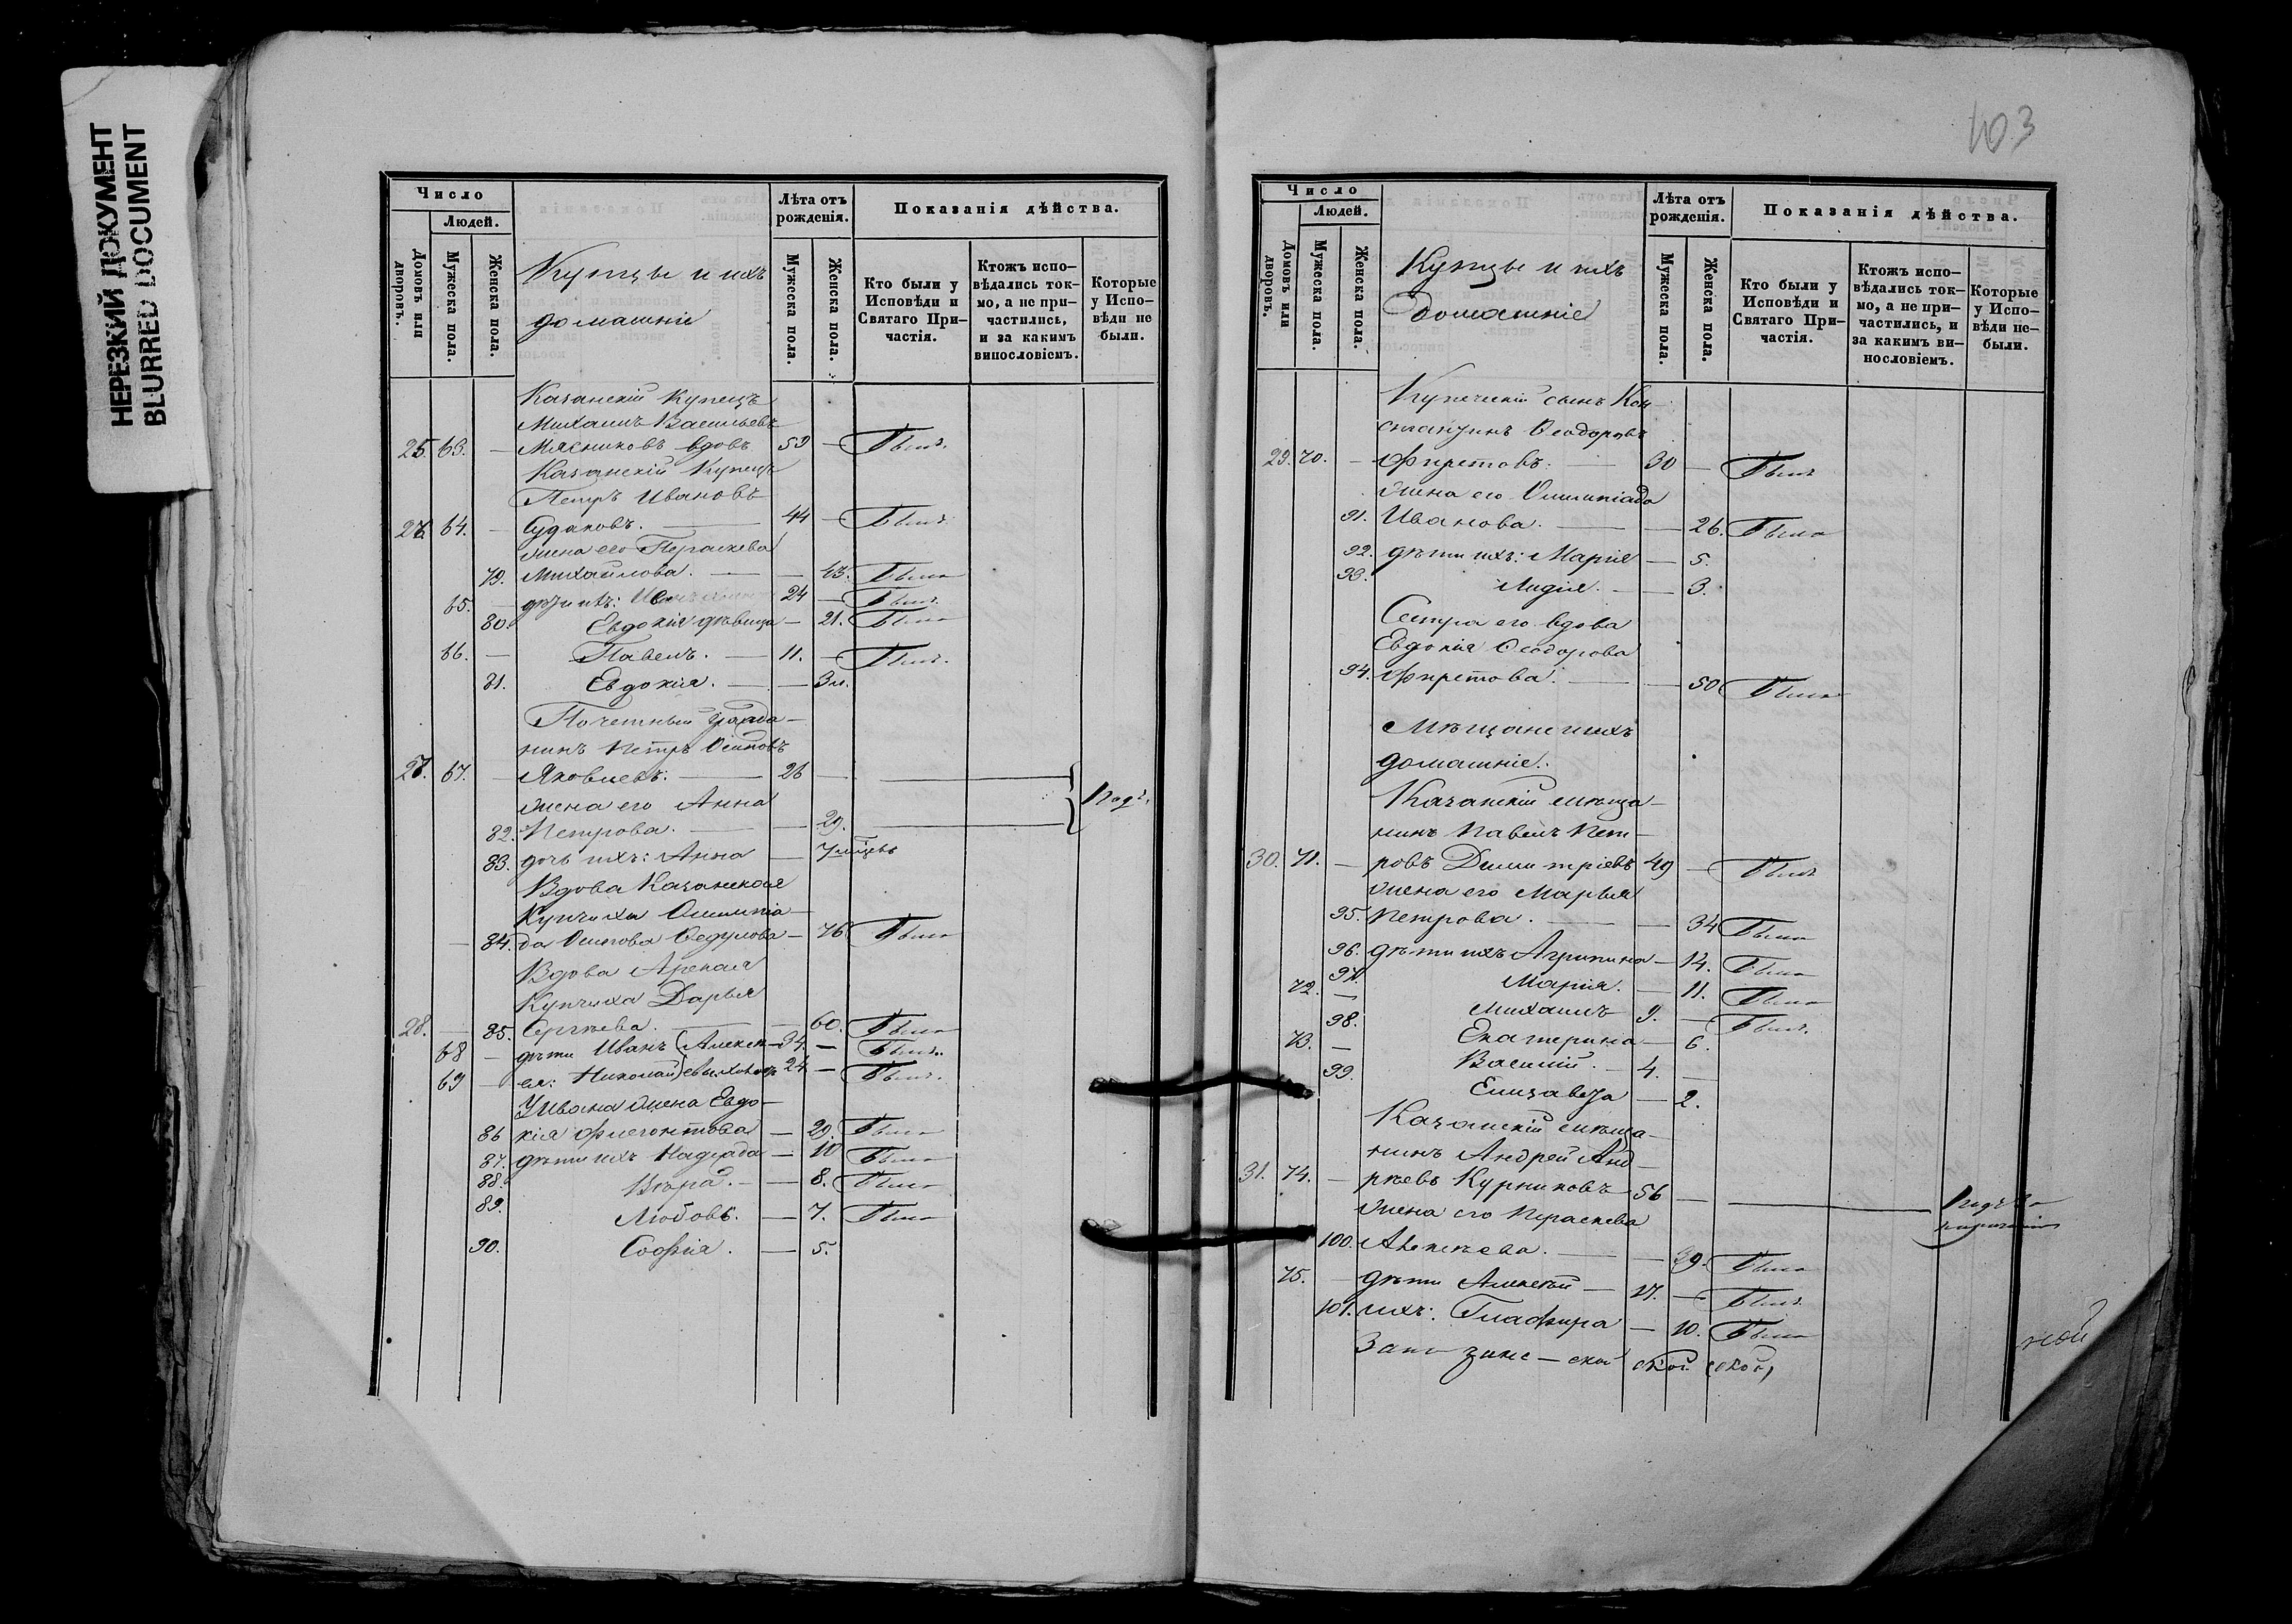 НЕРЕЗКИЙ ДОКУМЕНТ
BLURRED DOCUMENT
Число
Людей.
Домовъ или дворовъ.
Мужеска пола.
Женска пола.
Купцы и ихъ
домашніе
Лѣта отъ рожденія.
Мужеска пола.
Женска пола.
Показанія дѣйства.
Кто были у Исповѣди и Святаго При-частія.
Ктожъ испо-вѣдались ток-мо, а не при-частились, и за какимъ винословіемъ.
Которые у Испо-вѣди не были.
Казанскій Купецъ
Михаилъ Васильевъ
25. 63. — Мясниковъ вдовъ 59 — Былъ.
Казанскій Купецъ
Петръ Ивановъ
26 64. — Судаковъ. — 44 — Былъ.
жена его Параскева
79. Михайлова. — — 43. Была
65. — дѣти ихъ: 24 — Былъ.
80. Евдокія дѣвица — 21. Была
66. — Павелъ. — 11. — Былъ.
81. Евдокія. — — 3 м.
Почетный гражда-
нинъ Петръ Осиповъ
27. 67. — Яковлевъ: — 26 —
жена его Анна
82. Петрова. — — 29.
83. дочь ихъ: Анна — 7 мѣсцевъ
Вдова Казанская
Купчиха Олимпіа-
— 84. да Осипова Ѳедулова — 76. Была
Вдова Арская
Купчиха Дарья
28. — 85. Сергѣева. — — 60. Была
68 — дѣти Иванъ (Алексѣ- 34. — Былъ.
69 — ея: Николай) 24 — Былъ.
У Ивана жена Евдо-
86 кія Флегонтова — 29. Была
87. дѣти ихъ Надежда — 10 Была
88. Вѣра. — — 8. Была
89. Любовь. — 7. Была
90. Софія. — 5.
403
Число
Людей.
Домовъ или дворовъ.
Мужеска пола.
Женска пола.
Купцы и ихъ
Домашніе
Лѣта отъ рожденія.
Мужеска пола.
Женска пола.
Показанія дѣйства.
Кто были у Исповѣди и Святаго При-частія.
Ктожъ испо-вѣдались ток-мо, а не при-частились, и за какимъ ви-нословіемъ.
Которые у Испо-вѣди не-были.
Купеческій сынъ Кон-
стантинъ Ѳеодоровъ
29. 70. — Фиретовъ. — 30 — Былъ
жена его Олимпіада
91. Иванова. — — 26. Была
92. дѣти ихъ: Марія — 5.
93. Лидія. — — 3.
Сестра его вдова
Евдокія Ѳеодорова
94. Фиретова. — — 50 Была
Мѣщане и ихъ
домашніе.
Казанскій мѣща-
нинъ Павелъ Пет-
30. 71. — ровъ Димитріевъ 49 — Былъ
жена его Марья
95. Петрова. — — 34 Была
96. дѣти ихъ Агрипина — 14. Была
97. Марія. — 11. Была
72. — Михаилъ 9. — Былъ.
98. Екатерина — 6.
73. — Василій. — 4. —
99. Елизавета — 2.
Казанскій мѣща-
нинъ Андрей Анд-
31. 74. — рѣевъ Курниковъ 56 —
жена его Параскева
100. Алексѣева. — — 39. Была
75. — дѣти Алексѣй — 17. — Былъ.
101. ихъ: Глафира — 10. Была
ской